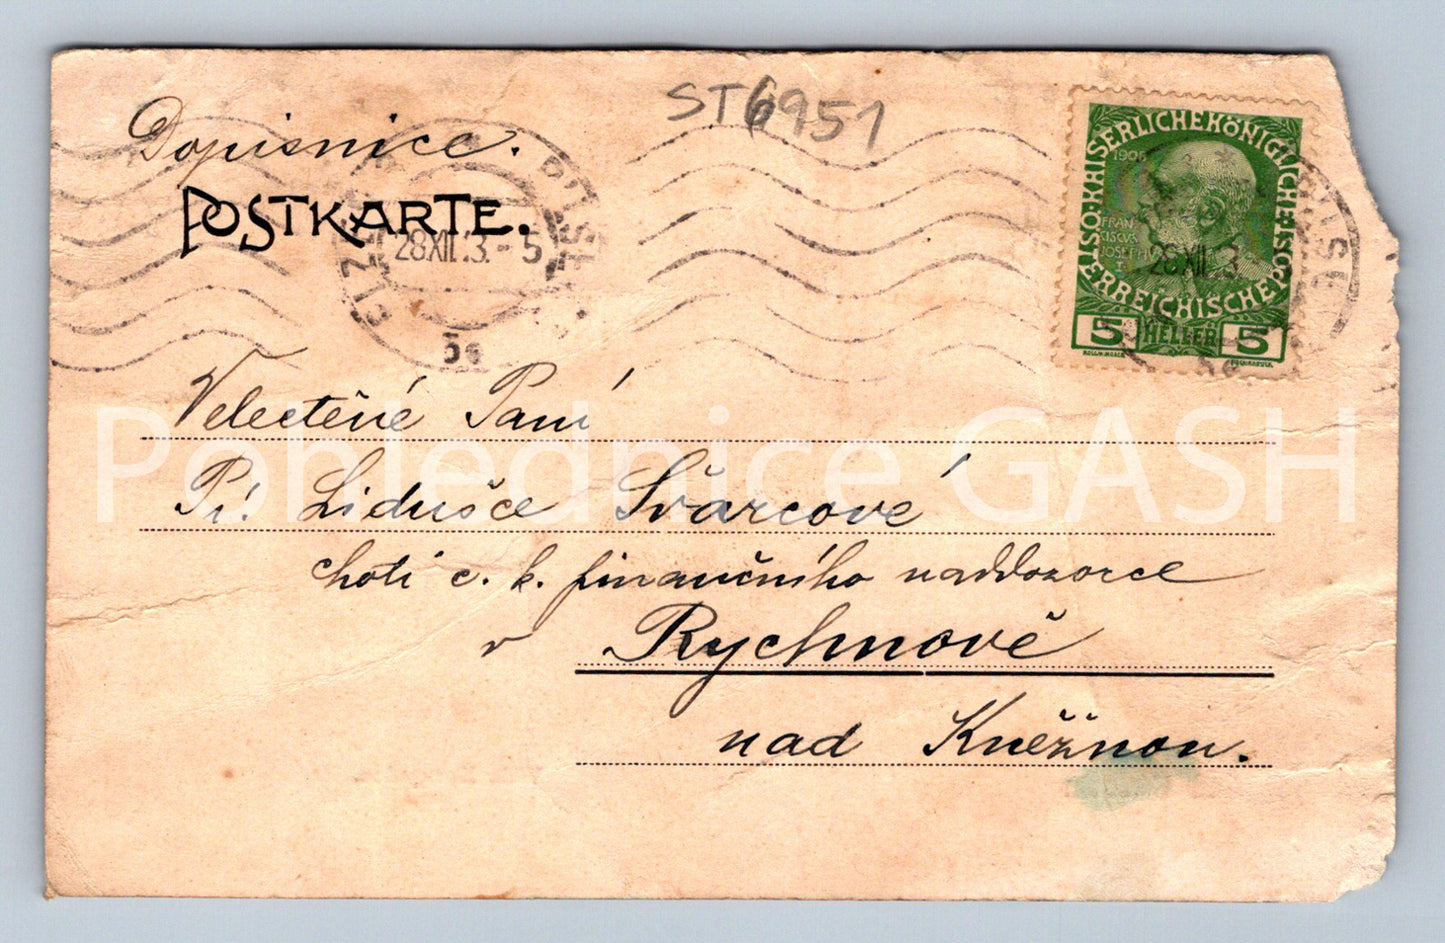 ST6951
Dopisnice.
POSTKARTE.
28.XII.13.-5
5e
KAISERLICHE KÖNIGLICHE ÖSTERREICHISCHE POST
1908
FRANCISCVS JOSEPH I
28.XII.13
5 HELLER 5
Velectěné Paní
Pí. Lidušce Švarcové
choti c. k. finančního naddozorce
v Rychnově
nad Kněžnou.
Pohlednice GASH